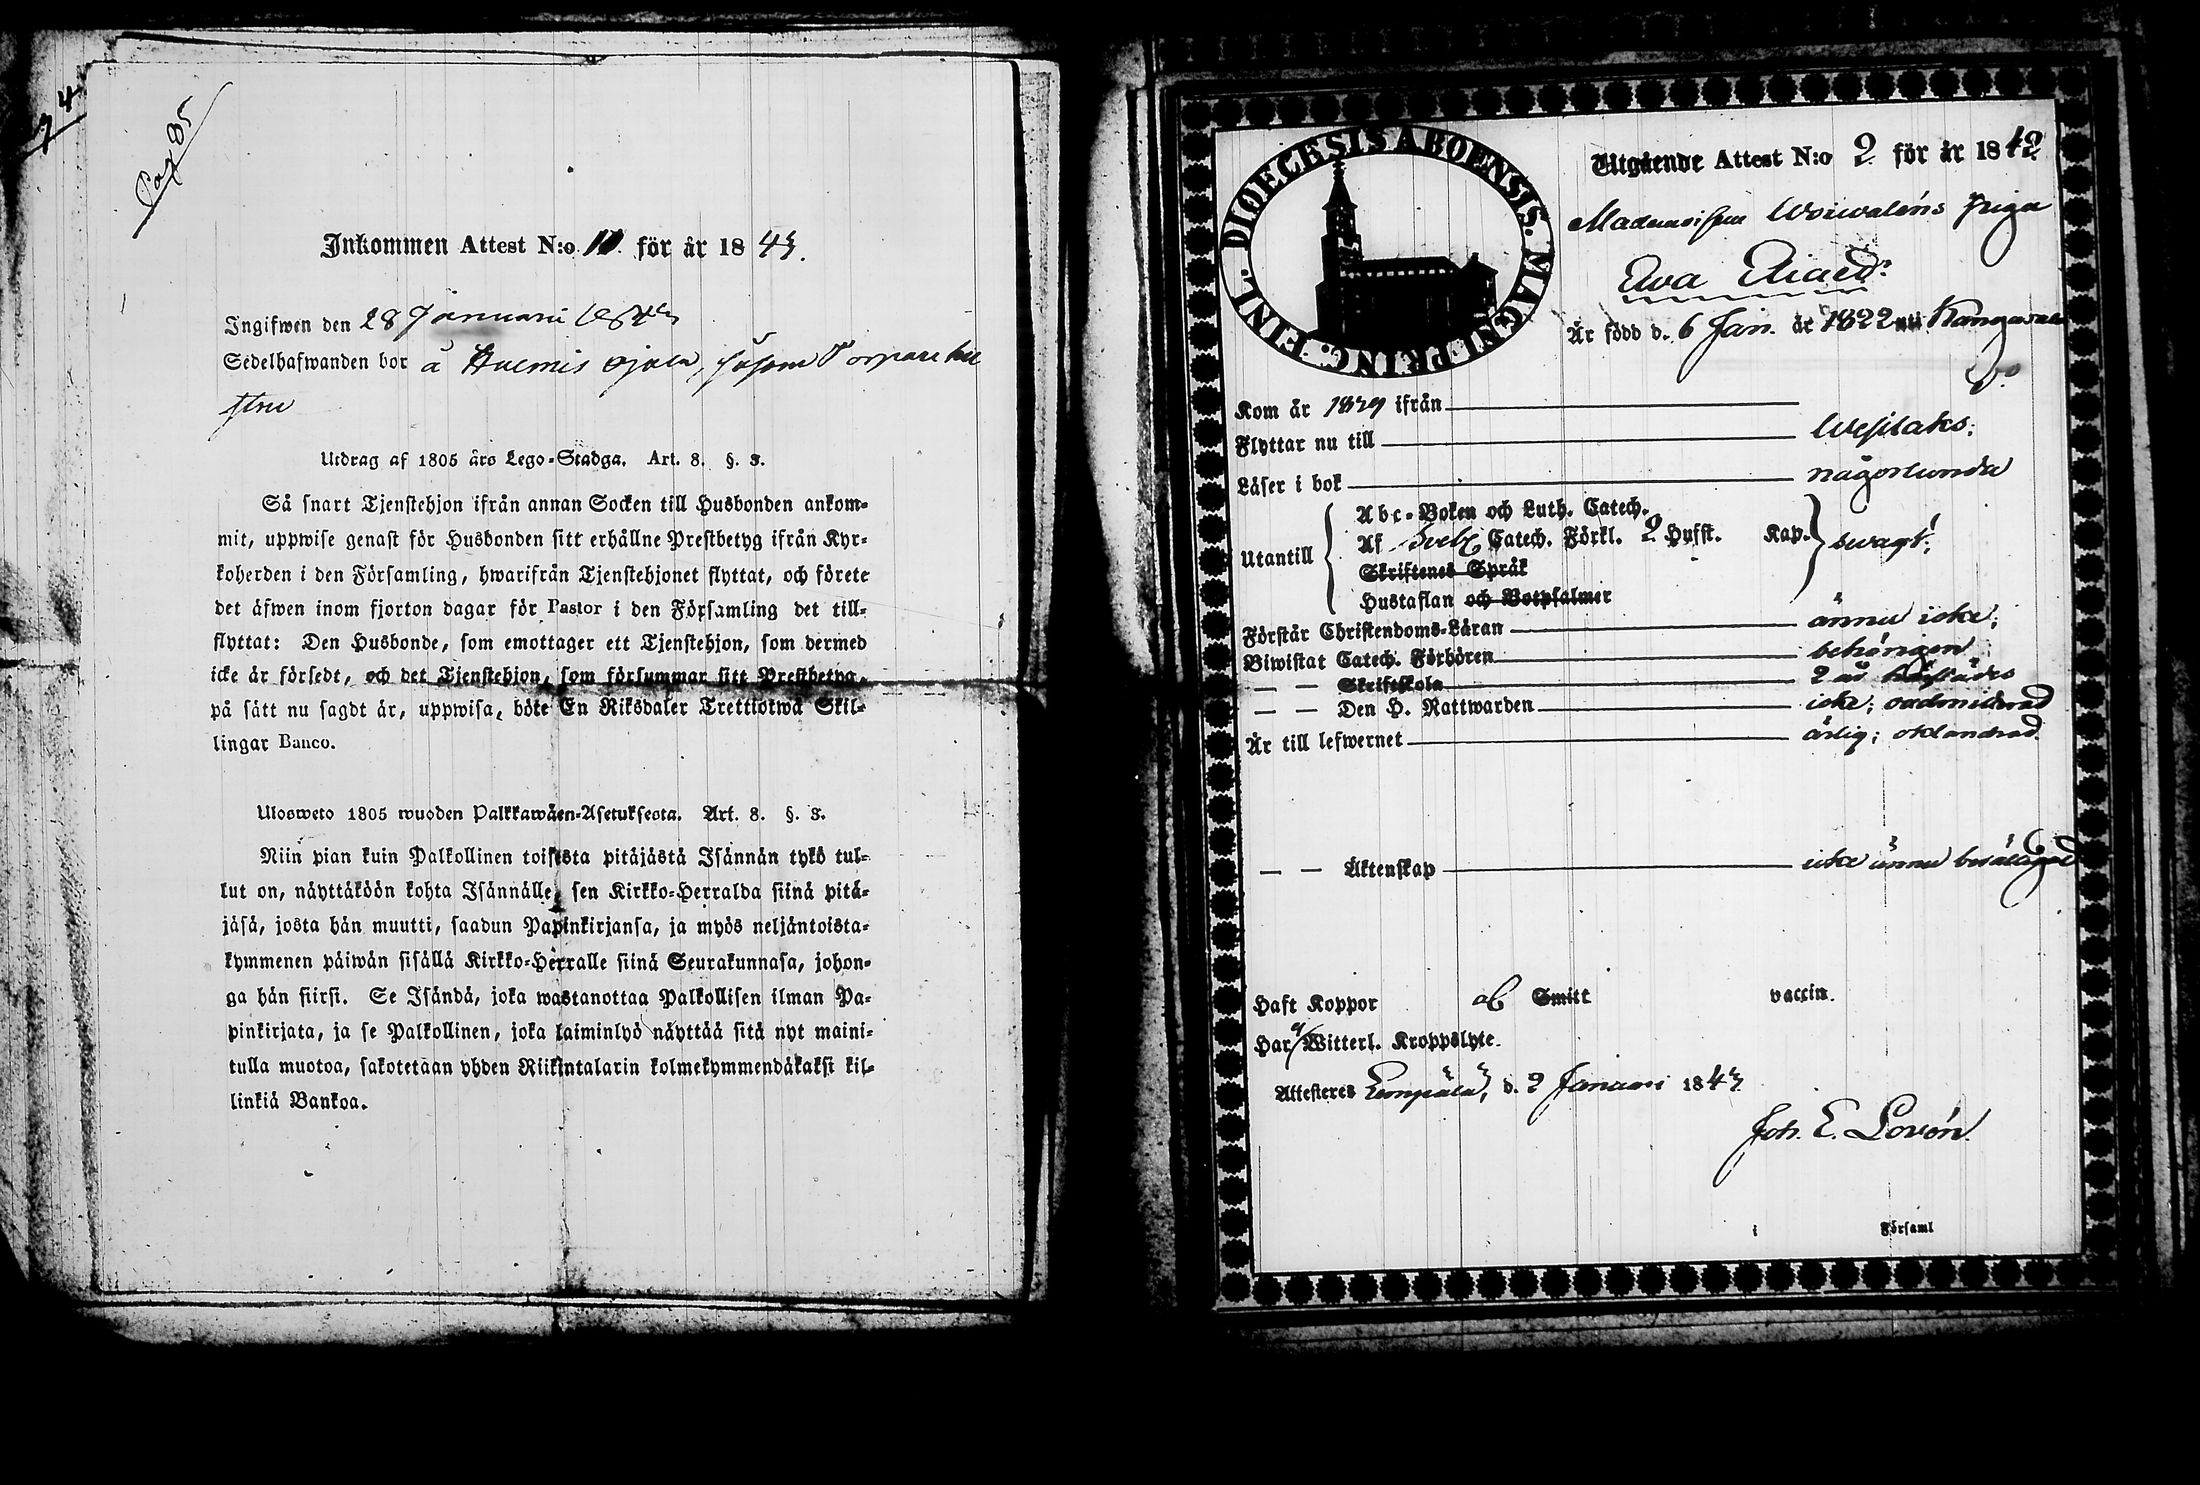 74
Pag 85
Inkommen Attest N:o 11 för år 1843.
Ingifwen den 28 Januari 1843
Sedelhafwanden bor å Ojala, såsom Torpare hu
stru
Utdrag af 1805 års Lego-Stadga. Art. 8. §. 3.
Så snart Tjenstehjon ifrån annan Socken till Husbonden ankom-
mit, uppwise genast för Husbonden sitt erhållne Prestbetyg ifrån Kyr-
koherden i den Församling, hwarifrån Tjenstehjonet flyttat, och förete
det äfwen inom fjorton dagar för Pastor i den Församling det till-
flyttat: Den Husbonde, som emottager ett Tjenstehjon, som dermed
icke är försedt, och det Tjenstehjon, som försummar sitt Prestbetyg,
på sätt nu sagdt är, uppwisa, böte En Riksdaler Trettiotwå Skil-
lingar Banco.
Ulosweto 1805 wuoden Palkkawäen-Asetuksesta. Art. 8. §. 3.
Niin pian kuin Palkollinen toisesta pitäjästä Isännän tykö tul-
lut on, näyttäköön kohta Isännälle sen Kirkko-Herralda siinä pitä-
jäsä, josta hän muutti, saadun Papinkirjansa, ja myös neljäntoista-
kymmenen päiwän sisällä Kirkko-Herralle siinä Seurakunnasa, johon-
ga hän siirsi. Se Isändä, joka wastanottaa Palkollisen ilman Pa-
pinkirjata, ja se Palkollinen, joka laiminlyö näyttää sitä nyt maini-
tulla muotoa, sakotetaan yhden Riikintalarin kolmekymmendäkaksi kil-
linkiä Bankoa.
DIOECESIS ABOENSIS. MAGNI PRINC. FINL.
Utgående Attest N:o 2 för år 1842
Mademoiselle Woiwaléns Piga
Ewa
Är född d. 6 Jan. år 1822 uti Kangasala
Kom år 1839 ifrån
Flyttar nu till Wesilaks;
Läser i bok någorlunda
Utantill
Abc-Boken och Luth. Catech.
Af Sveb. Catech. Förkl. 2 Hufst. Kap.
swagt;
Skriftenes Språk
Hustaflan och Botpsalmer
Förstår Christendoms-Läran ännu icke;
Biwistat Catech. Förhören behörigen
— — Skriftskola 2 år härstädes
— — Den H. Nattwarden icke; oadmitterad
Är till lefwernet ärlig; oklandrad.
— — Äktenskap icke ännu berättigad
Haft Koppor af Smitt vaccin.
Har ej Witterl. Kroppslyte.
Attesteres Lempälä, d. 2 Januari 1843
Joh. E. Lovén.
i Församl